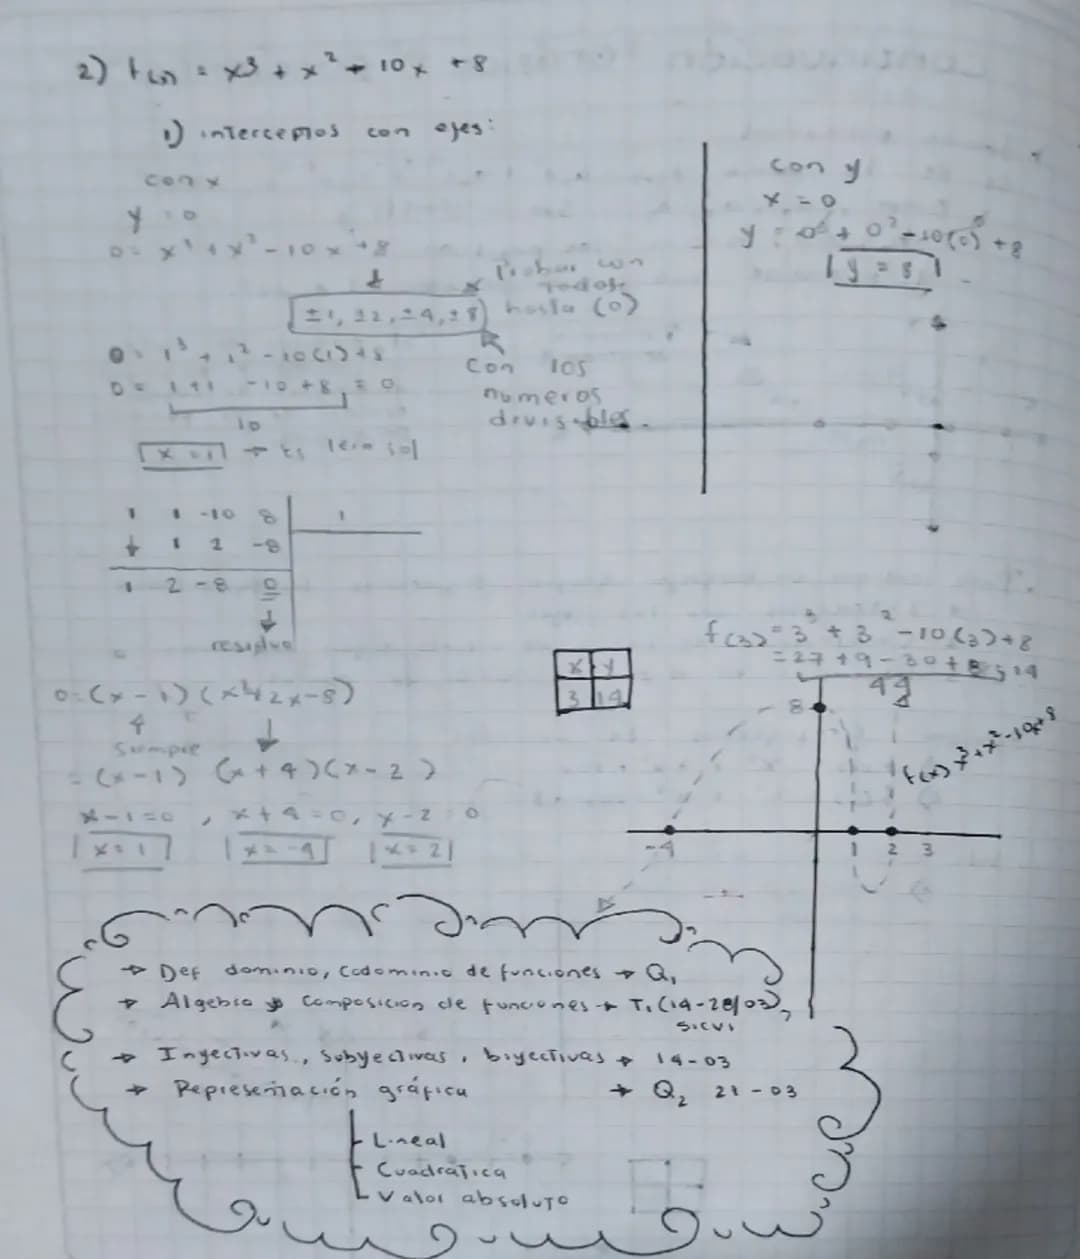 2) f(x) = x³ + x² - 10x + 8
1) interceptos con ejes:
con x
y = 0
0 = x³ + x² - 10x + 8
Probar con
todos
hasta (0)
±1, ±2, ±4, ±8
0 = 1³ + 1² - 10(1) + 8
0 = 1+1 -10 +8 = 0
10
con los
numeros
divisibles.
x = 1 → Es 1era sol
con y
x = 0
y = 0³ + 0² - 10(0) + 8
y = 8
1 1 -10 8 | 1
↓ 1 2 -8
1 2 -8 0
↓
residuo
0 = (x - 1)(x² + 2x - 8)
siempre
= (x - 1) (x + 4)(x - 2)
x - 1 = 0 , x + 4 = 0, x - 2 = 0
x = 1 x = -4 x = 2
x y
3 14
f(3) = 3³ + 3² - 10(3) + 8
= 27 + 9 - 30 + 8 = 14
44
8
f(x) = x³ + x² - 10x + 8
-4 1 2 3
→ Def dominio, codominio de funciones → Q₁
→ Algebra y composicion de funciones → T₁ (14-28/03),
SICVI
→ Inyectivas, subyectivas, biyectivas → 14-03
→ Representación gráfica → Q₂ 21-03
Lineal
Cuadrática
Valor absoluto